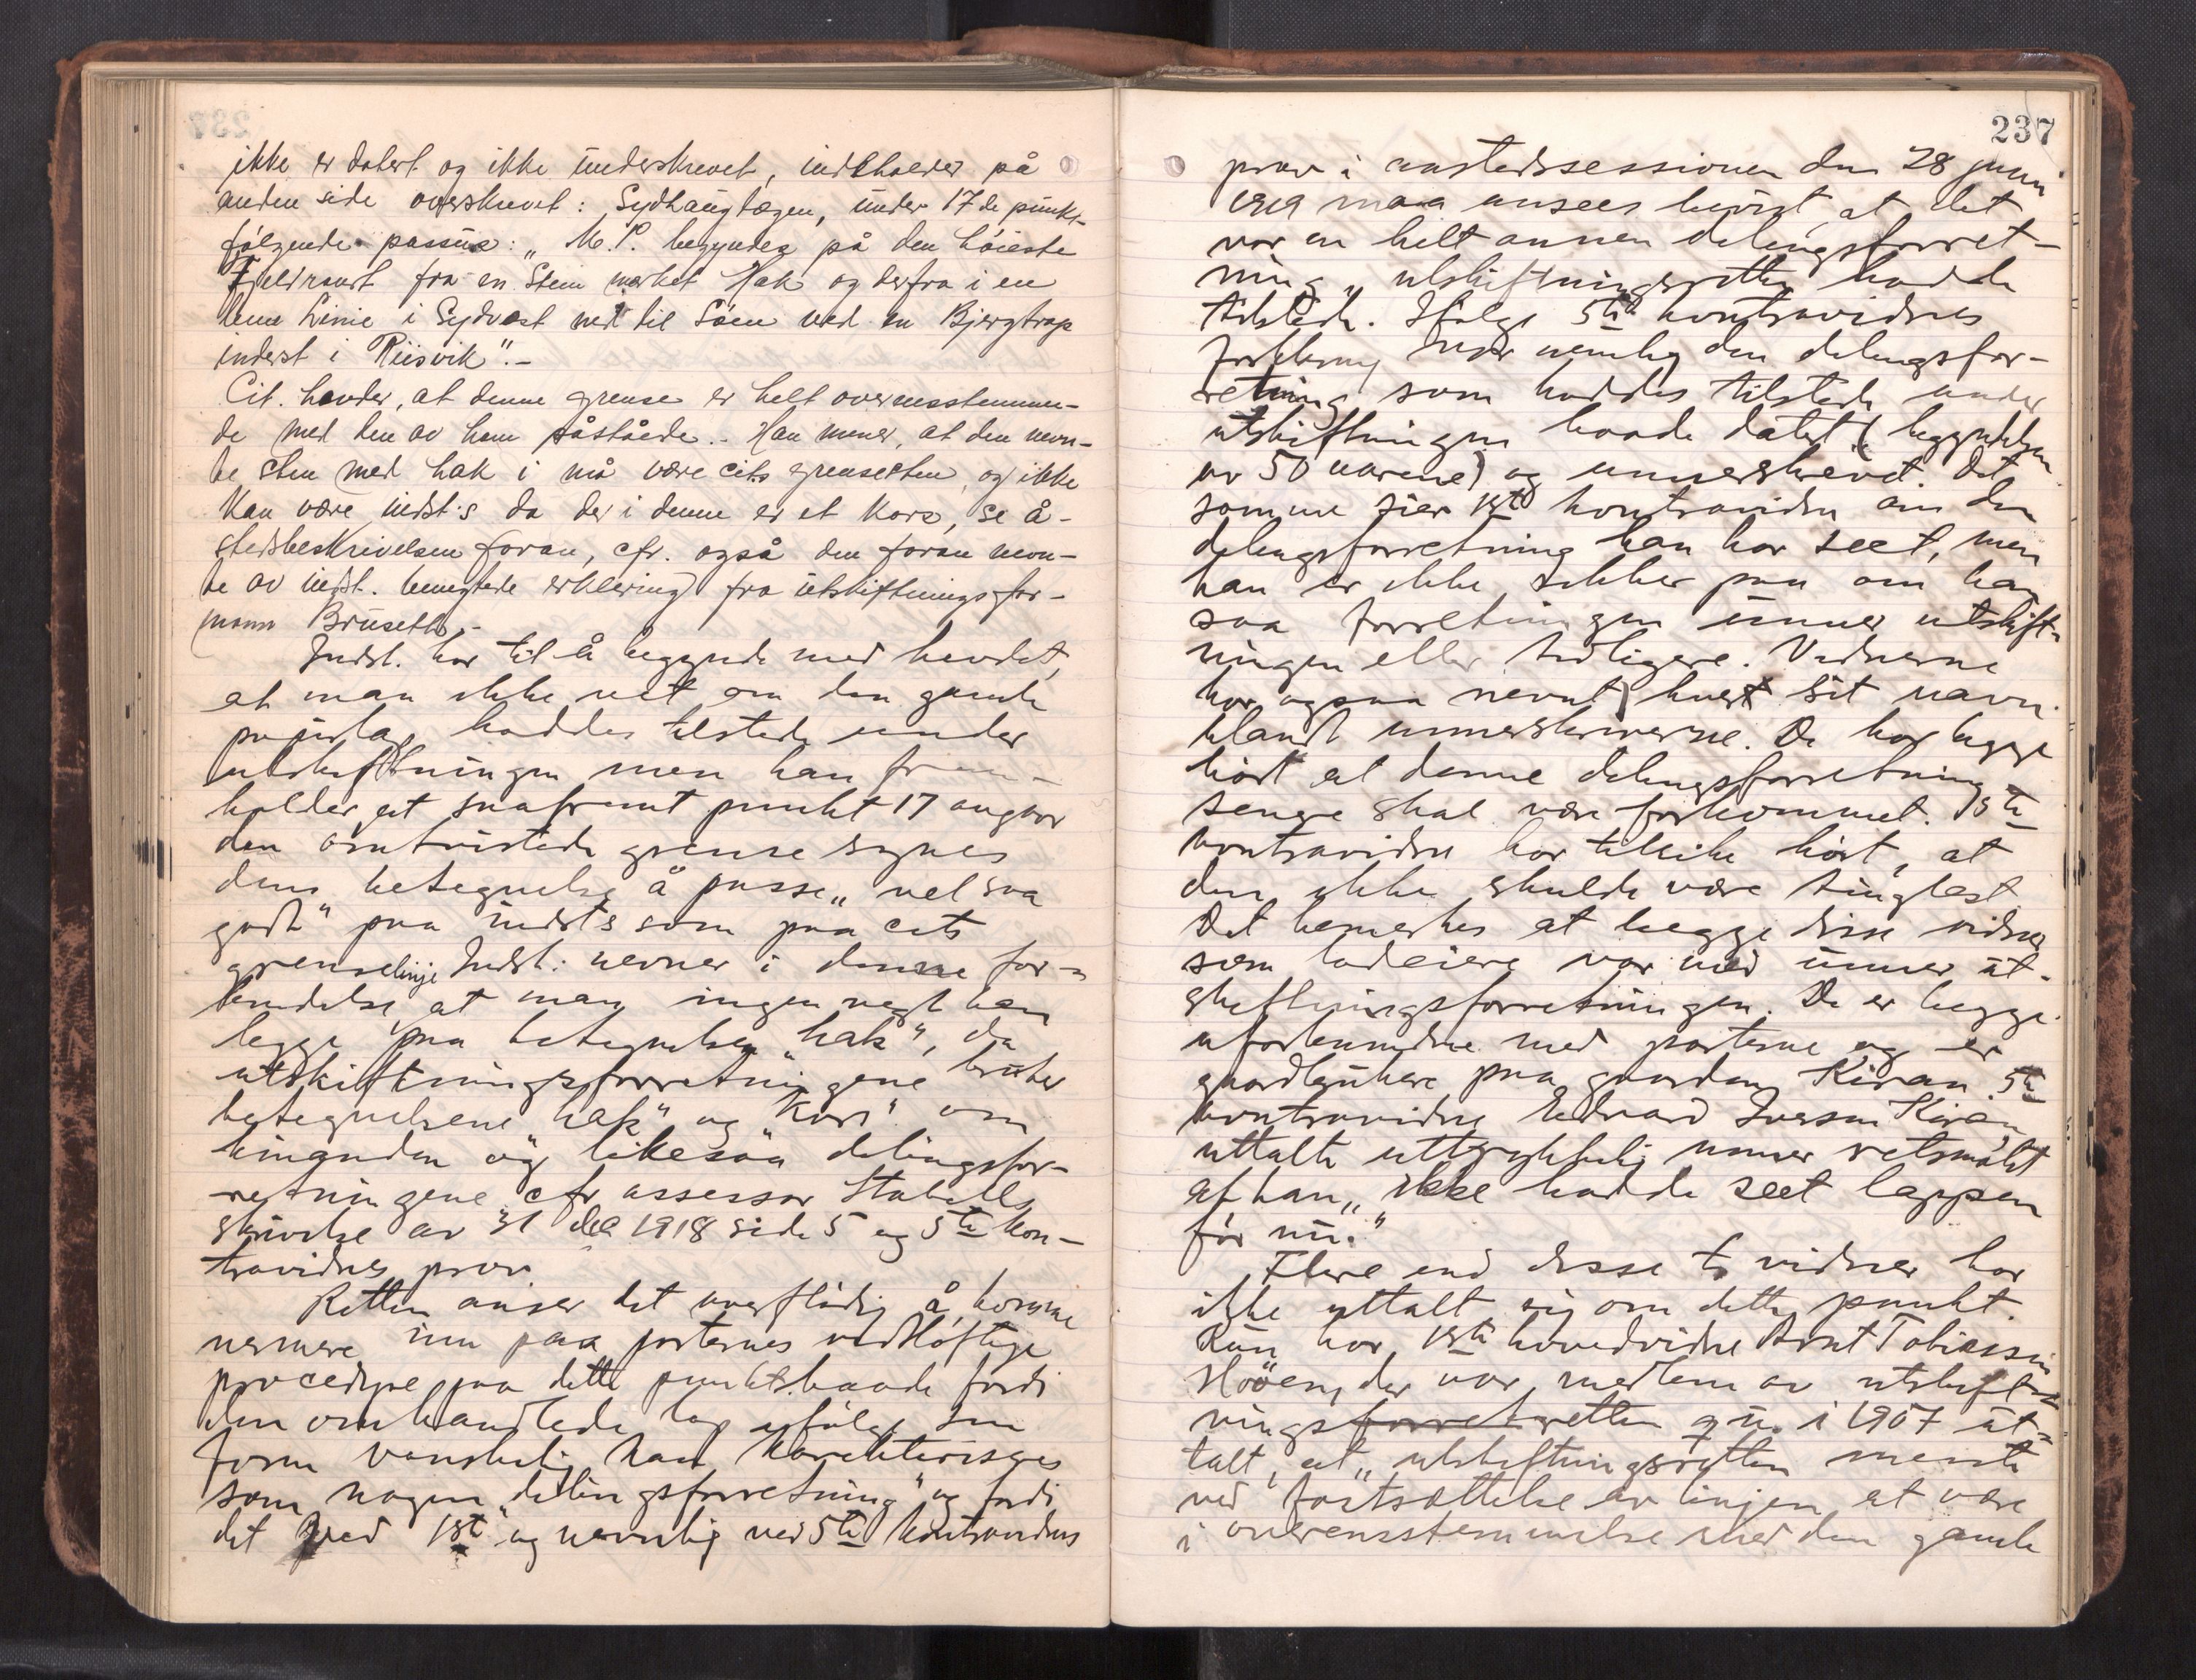 ikke er datert og ikke underskrevet, indeholder på
anden side overskrevet: Sydhaugtægen, under 17de punkt
følgende passus: „M. P. begyndes på den høieste
Fjeldrant fra en Steen merket Hak og derfra i en
lenie Linie i Sydvest ned til Söen ved en Bjergtrap
inderst i Riisvik”.-
Cit. hevder, at denne grense er helt overensstemmen-
de med den av ham påståede.- Han mener, at den nevn-
te sten med hak i må være cits grensesten, og ikke
kan være indst.s da der i denne er et kors, se å-
stedsbeskrivelsen foran, cfr. også den foran nevn-
te av indst. benegtede erklering fra utskiftningsfor-
mann Brüseth.-
Indst. har til å begynde med hevdet,
at man ikke vet om den gamle
papirlap haddes tilstede under
utskiftningen men han frem-
holder at saafremt punkt 17 angaar
den omtvistede grense synes
dens betegnelse å passe „vel saa
godt” paa indsts som paa cits
grenselinje Indst: nevner i denne for-
bindelse, at man ingen vegt kan
legge paa betegnelsen „hak”, da
utskiftningsforretningene bruker
betegnelsene „hak” og „kors” om
hinanden og likesaa delingsfor-
retningene cfr assessor Stabells
skrivelse av 31 dec 1918 side 5 og 5te kon-
travidnes prov.
Retten anser det overflødig å komme
nermere inn paa parternes vidløftige
procedyre paa dette punkt baade fordi
den omhandlede lap ifølge sin
form vanskelig kan karakteriseres
som nogen „delingsforretning” og fordi
det ved 1ste og nevnlig ved 5te kontravidnes
237
prov i aastedssessionen den 28 juni
1919 maa ansees bevist, at det
var en helt annen delingsforret-
ning, utskiftningsretten hadde
tilstede. Ifølge 5te kontravidnes
forklaring var nemlig den delingsfor-
retning som haddes tilstede under
utskiftningen baade datert (begyndelsen
av 50 aarene) og underskrevet. Det
samme sier 1ste kontravidne om den
delingsforretning han har seet, men
han er ikke sikker paa om han
saa forretningen under utskift-
ningen eller tidligere. Vidnerne
har ogsaa nevnt hvert sit navn
blandt underskriverne. De har begge
hørt at denne delingsforretning
senere skal være forkommet. 5te
kontravidne har tillike hørt, at
den ikke skulde være tinglest
Det bemerkes at begge disse vidner
som lodeiere var med under ut-
skiftningsforretningen. De er begge
uforbundne med parterne og er
gaardbrukere paa gaarden Kiran. 5te
kontravidne Edvard Iversen Kiran,
uttalte uttrykkelig under retsmøtet
at han „ikke hadde seet lappen
før nu.”
Flere end disse to vidner har
ikke uttalt sig om dette punkt.
Kun har 1ste hovedvidne Arnt Tobiassen
der var medlem av utskift-
ningsforretretten i 1907 ut-
talt, at „utskiftningsretten mente
ved fortsættelse av linjen at være
i overensstemmelse med den gamle